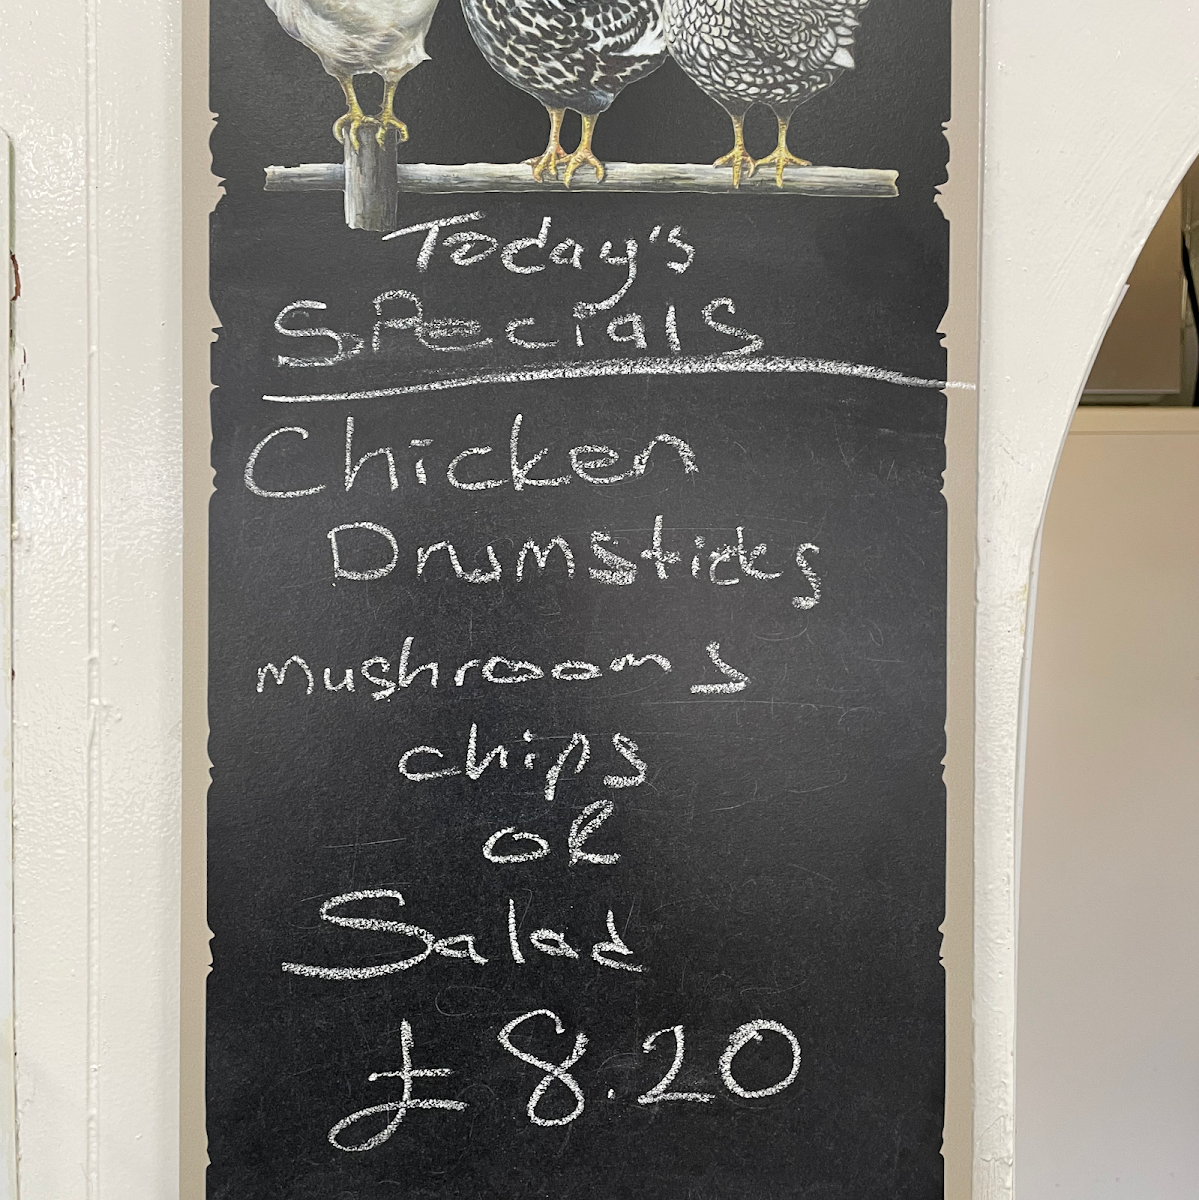 Today's
Specials
Chicken
Drumsticks
mushrooms
chips
OR
Salad
£8.20